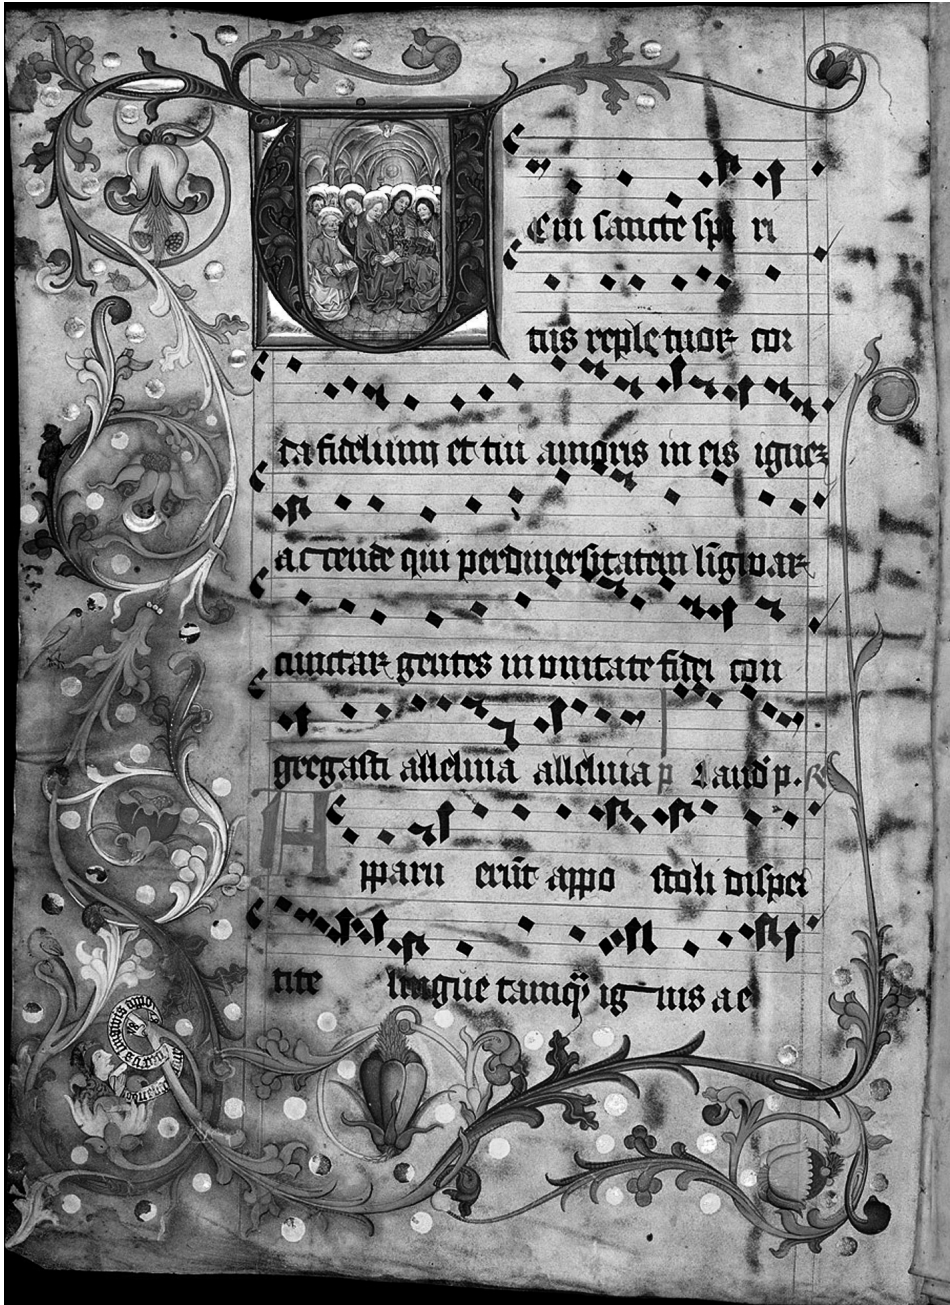 Veni sancte spi ri
tus reple tuor cor
da fidelium et tui amoris in eis ignez
accende qui per diuersitatem līgwar
cunctar gentes in vnitate fidei con
gregasti alleluia alleluia p Laud p.
A
pparu erūt appo stoli disper
tite lingue tamq̄ ig nis ae